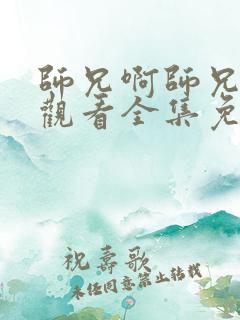 師兄啊師兄
觀看全集免
祝壽歌
未经同意禁止转载